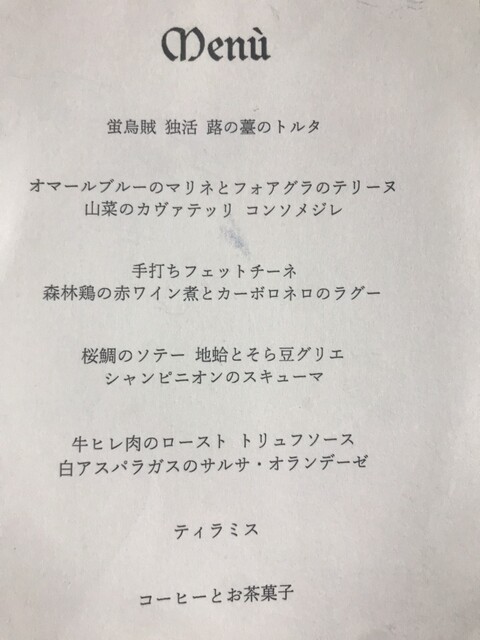 Menù
蛍烏賊 独活 蕗の薹のトルタ
オマールブルーのマリネとフォアグラのテリーヌ
山菜のカヴァテッリ コンソメジレ
手打ちフェットチーネ
森林鶏の赤ワイン煮とカーボロネロのラグー
桜鯛のソテー 地蛤とそら豆グリエ
シャンピニオンのスキューマ
牛ヒレ肉のロースト トリュフソース
白アスパラガスのサルサ・オランデーゼ
ティラミス
コーヒーとお茶菓子